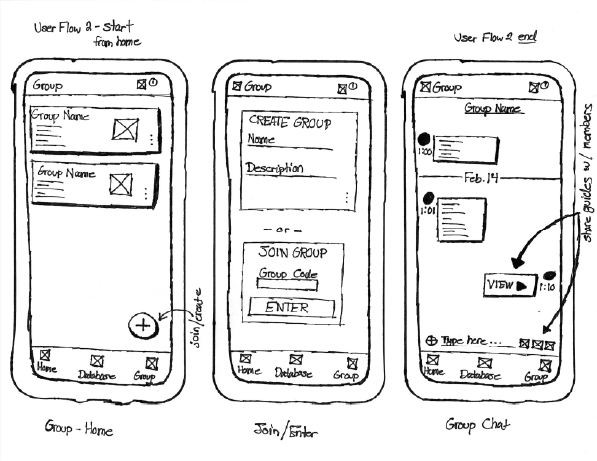 User Flow 2 - start
from home
User Flow 2 end
Group
Group Name
Group Name
join/create
Home
Database
Group
Group - Home
Group
CREATE GROUP
Name
Description
- or -
JOIN GROUP
Group Code
ENTER
Home
Database
Group
Join/Enter
Group
Group Name
1:00
Feb. 14
1:01
VIEW
1:10
Type here...
Home
Database
Group
share guides w/ members
Group Chat